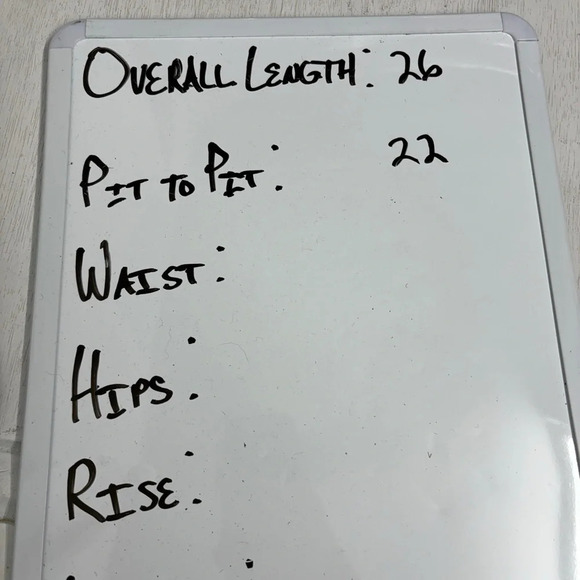 OVERALL LENGTH: 26
PIT TO PIT: 22
WAIST:
HIPS:
RISE: